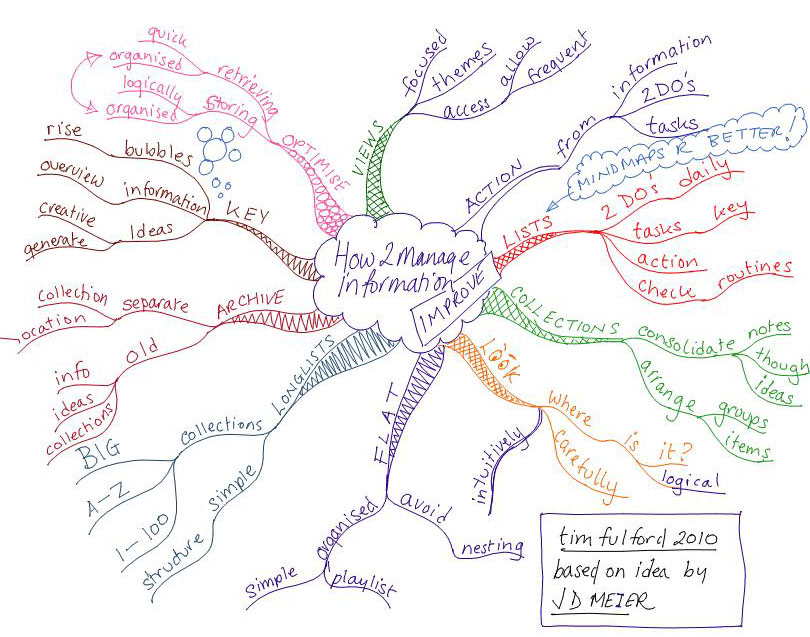 How 2 manage
Information
IMPROVE
VIEWS
focused
themes
access
allow
frequent
ACTION
from
information
2DO's
tasks
MINDMAPS R BETTER!
LISTS
2 DO's daily
tasks key
action
check routines
COLLECTIONS
consolidate
notes
though
ideas
arrange
groups
items
LOOK
where
is
it?
logical
carefully
intuitively
FLAT
avoid
nesting
organised
simple
playlist
LONGLISTS
collections
BIG
A-Z
1-100
simple
structure
ARCHIVE
separate
collection
location
old
info
ideas
collections
KEY
bubbles
rise
information
overview
Ideas
creative
generate
OPTIMISE
retrieving
quick
organised
storing
logically
organised
tim fulford 2010
based on idea by
JD MEIER